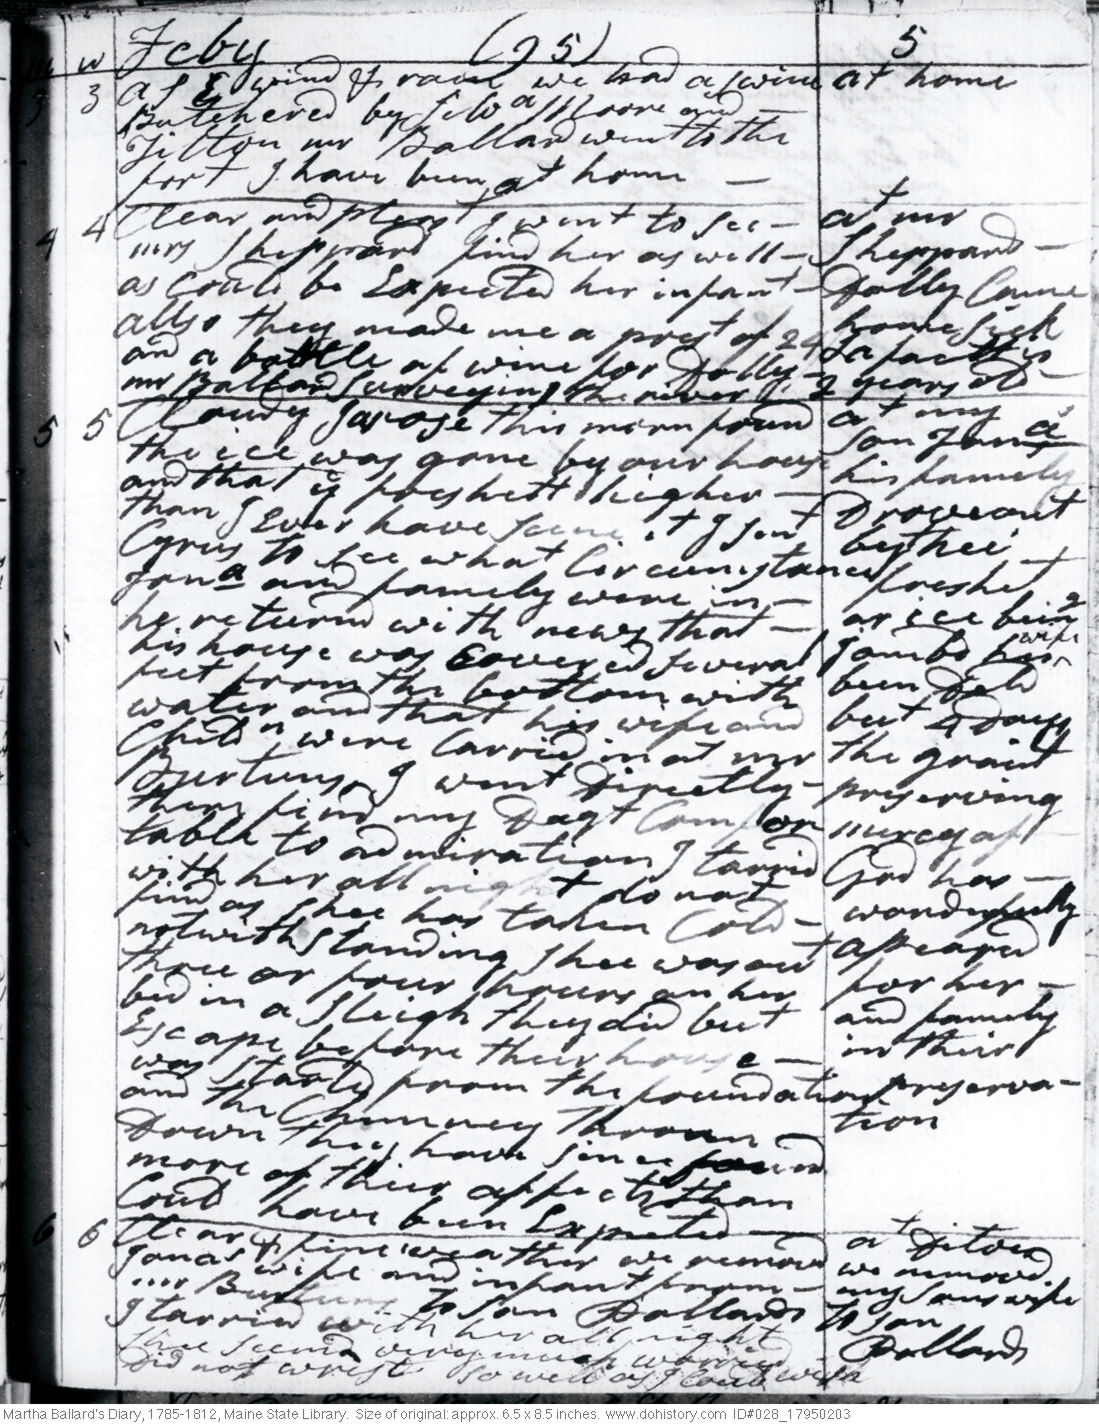 m w Feby (95) 5
3 3 a S E wind & rain we had a swine
Butchered by Moore and
Titton mr Ballard went to the
fort I have been at home —
at home
4 4 Clear and pleast I went to see —
mrs Sheppard find her as well —
as Could be Expected her infant —
allso they made me a prest of 24
and a bottle of wine for Dolly —
mr Ballard Surveying the river
at mr
Sheppard —
Dolly Came
home Sick
years old —
5 5 Cloudy I arose this morn found
the ice was gone by our house
and that ye freshett higher —
than I Ever have seen it I sent
Cyrus to see what Circumstances
Jona and famely were in —
he returnd with news that —
his house was Coverd several
feet from the bottom with
water and that his wife and
Childn were Carried in at mr
Burtuns. I went Directly —
there find my Dagt Comfor
table to admiration I tarried
with her all night do not
find as shee has taken Cold —
notwithstanding shee was out
three or four hours on her
bed in a sleigh they did but
Escape before their house —
was startd from the foundation
and the Chimney Thrown —
Down they have since found
more of their affects than
Coud have been Expected —
at my
son Jonas
his famely
Drove out
by thee
freshet
or ice being
jambd his wife
been Deld
but 4 Days
the graint
preserving
mercy off
God has —
wonderfully
appeared
for her —
and famely
in their
preserva-
tion
6 6 Clear & fine weather we removd
Jonas wife and infant from —
mr Burtuns to son Pollards
I tarried with her all night
shee seemd very much worried
Did not wrest so well as I could wish
at Ditoes
we removd
my sons wife
to son
Pollards
Martha Ballard's Diary, 1785-1812, Maine State Library. Size of original: approx. 6.5 x 8.5 inches. www.dohistory.com ID#028_17950203